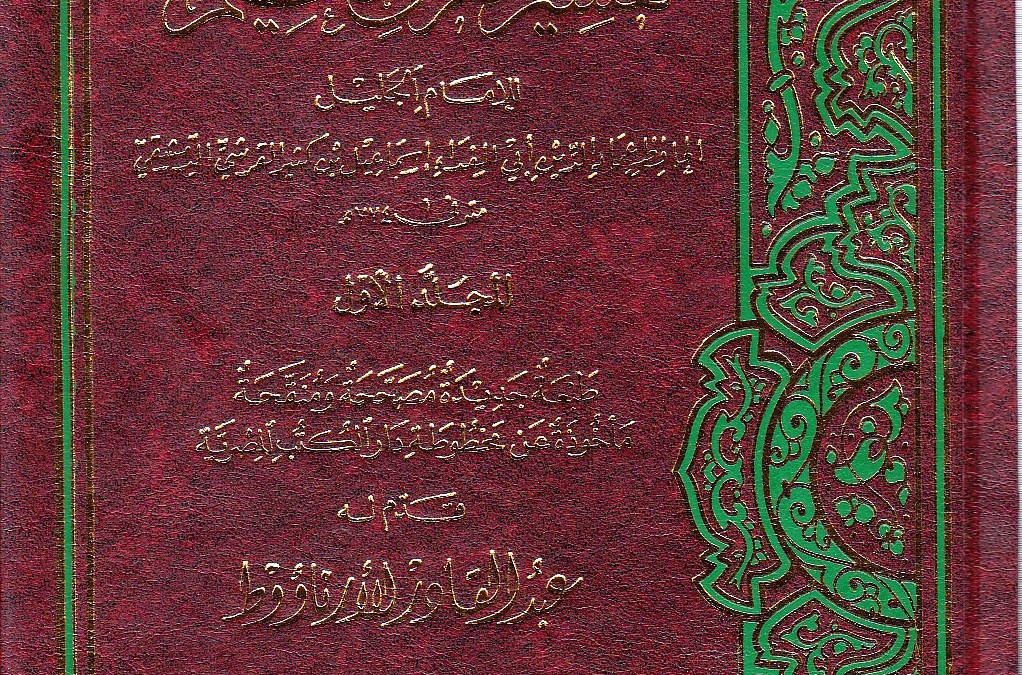 تفسير القرآن العظيم
للإمام الجليل
الحافظ عماد الدين أبي الفداء إسماعيل بن كثير القرشي الدمشقي
متوفى ٧٧٤هـ
المجلد الأول
طبعة جديدة مصححة ومنقحة
مأخوذة عن مخطوطة دار الكتب المصرية
قدم له
عبد القادر الأرناؤوط